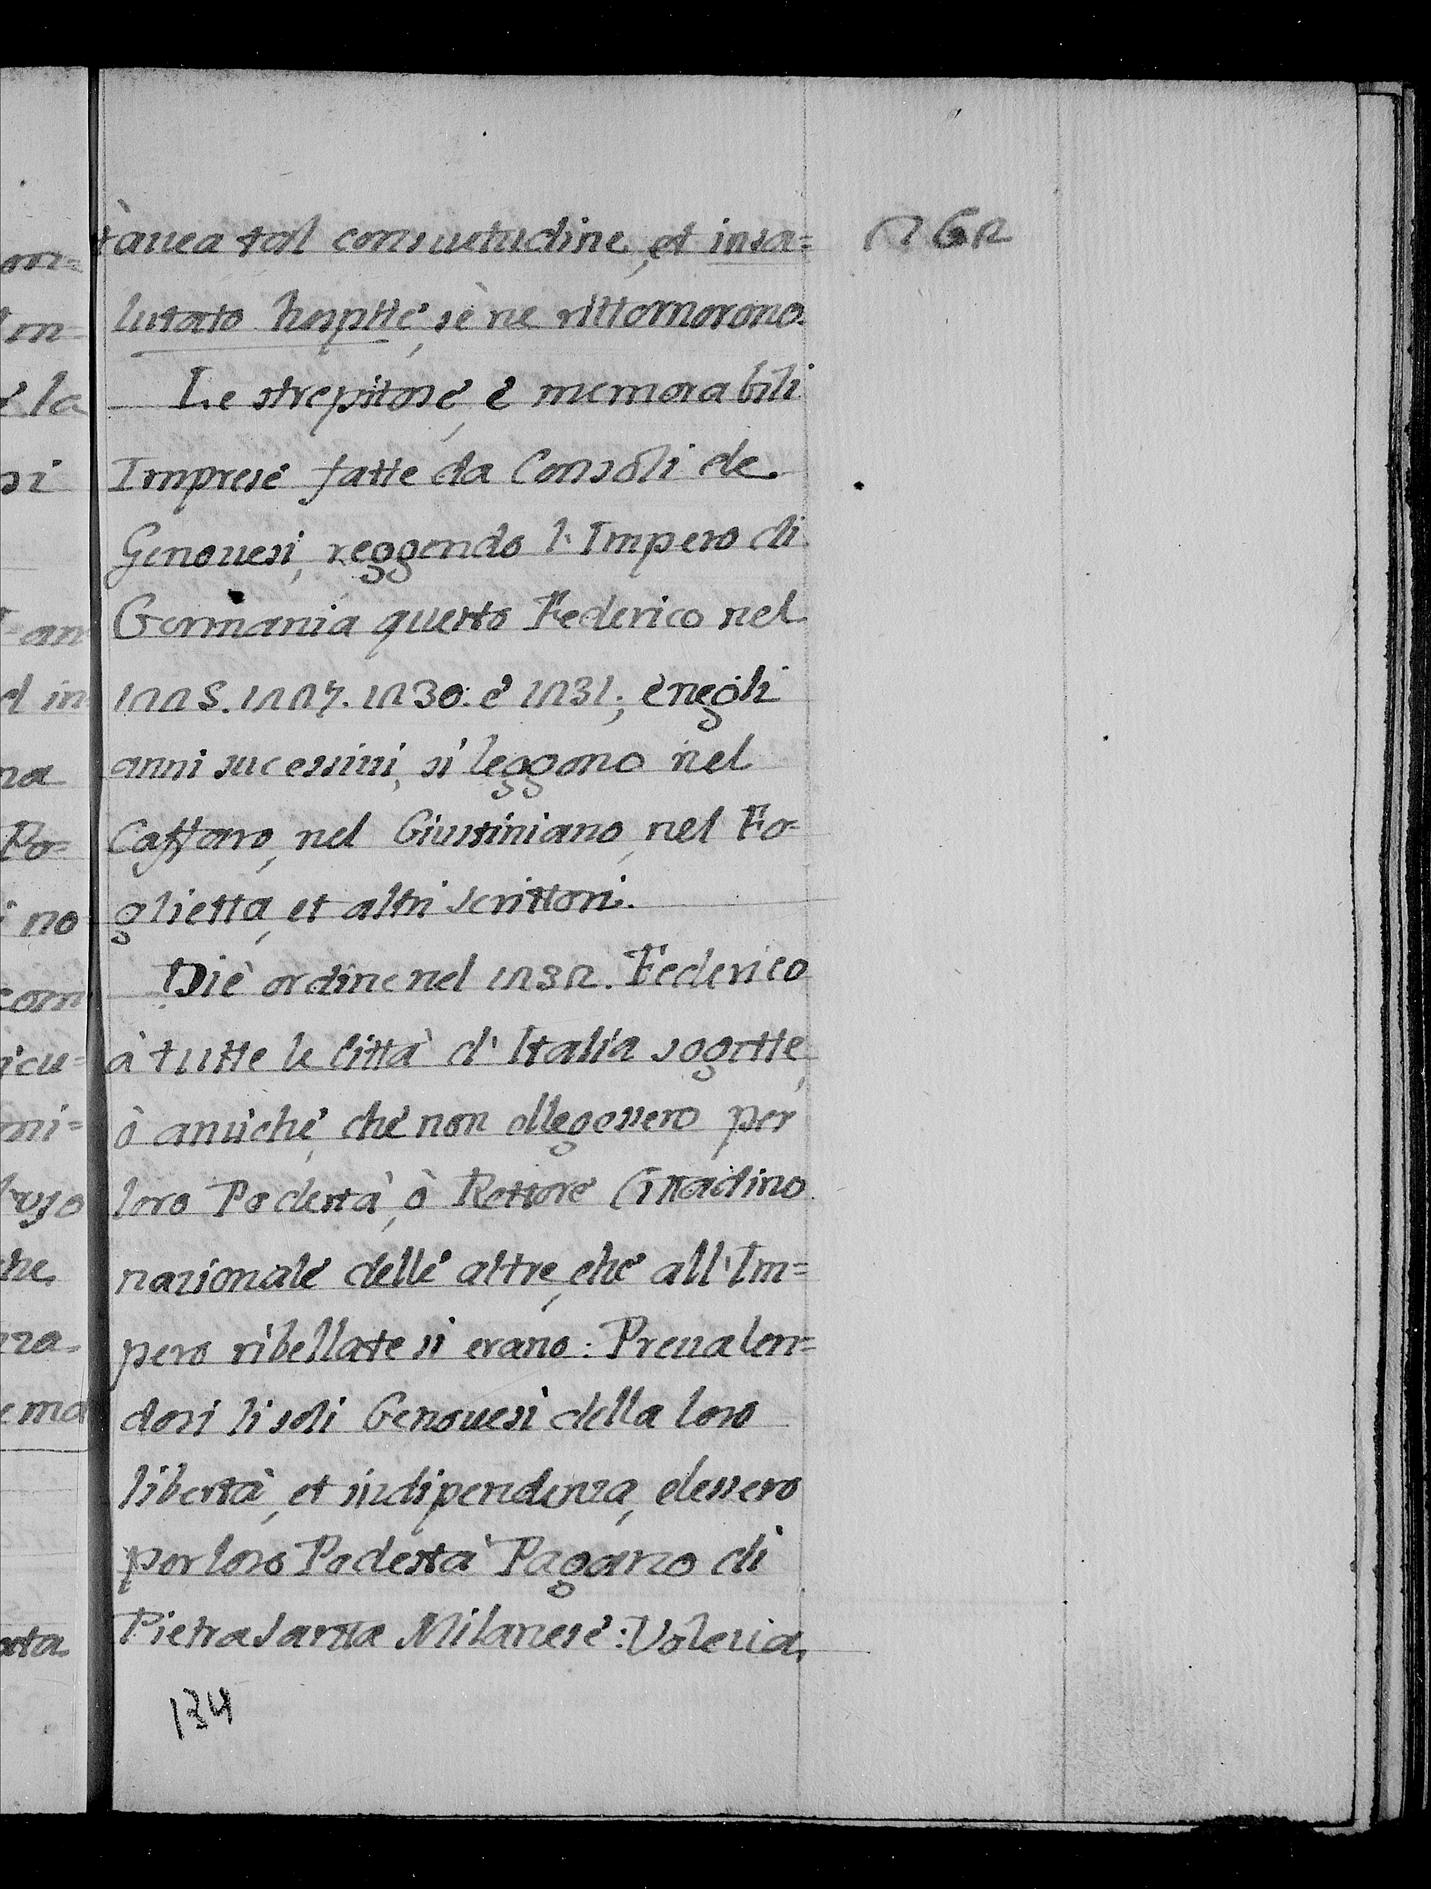 tauea tal consuetudine, et insa=
lutato hospite, sè ne rittornorono.
Le strepitose, è memorabili
Imprese fatte da Consoli de
Genouesi, reggendo l'Impero di
Germania questo Federico nel
1225. 1227. 1230. è 1231; è negli
anni sucessiui, si leggono nel
Caffaro, nel Giustiniano, nel Fo=
glietta, et altri scrittori.
Diè ordine nel 1232. Federico
à tutte le Città d'Italia sogette,
ò amiche, che non ellegessero per
loro Podestà, ò Rettore Cittadino
nazionale delle altre, che all'Im=
pero ribellate si erano: Preualen=
dosi li soli Genouesi della loro
libertà, et indipendenza, elessero
per loro Podestà Pagano di
Pietrasanta Milanese: Voleua
262
134